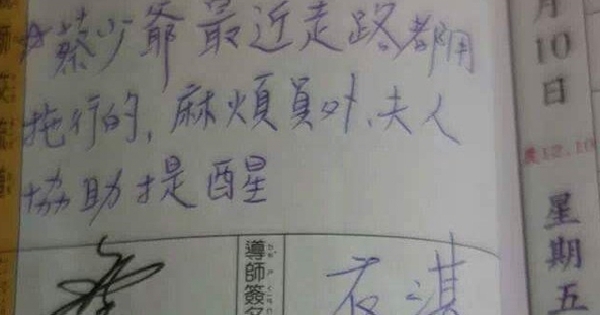 ☆蔡少爺最近走路都用
拖行的,麻煩員外、夫人
協助提醒
月10日
農12.10
星期五
導師簽名